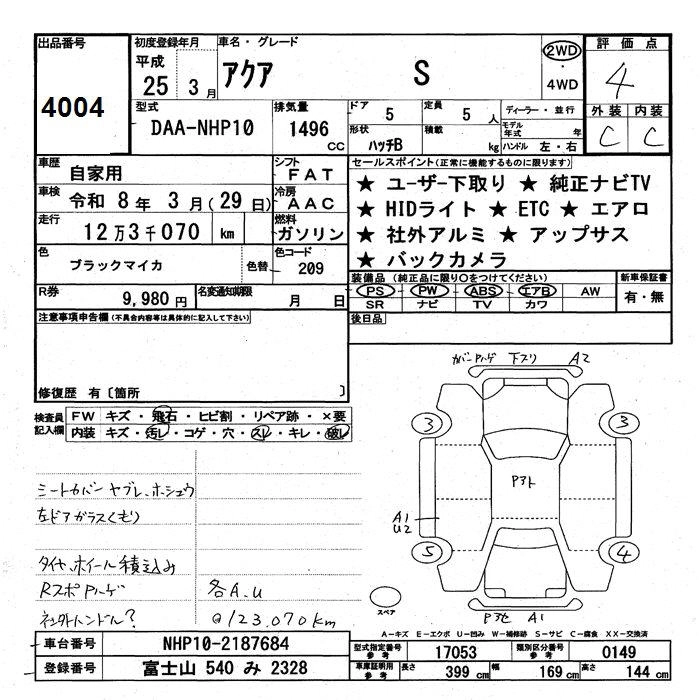 出品番号
4004
初度登録年月
平成
25 3 月
車名・グレード
アクア S
2WD
・
4WD
評価点
4
外装 内装
C C
型式
DAA-NHP10
排気量
1496
CC
ドア
5
定員
5 人
ディーラー・並行
形状
ハッチB
積載
kg
モデル年式 年
ハンドル 左・右
車歴
自家用
シフト
FAT
車検
令和 8 年 3 月 (29 日)
冷房
AAC
走行
12 万 3 千 070 km
燃料
ガソリン
色
ブラックマイカ
色替
色コード
209
R券
9,980 円
名変通知期限
月 日
セールスポイント(正常に機能するものに限ります)
★ ユーザー下取り ★ 純正ナビTV
★ HIDライト ★ ETC ★ エアロ
★ 社外アルミ ★ アップサス
★ バックカメラ
装備品 (純正品に限り○をつけてください)
PS PW ABS エアB AW
SR ナビ TV カワ
新車保証書
有・無
後日品
注意事項申告欄(不具合内容等は具体的に記入して下さい)
修復歴 有〔箇所 〕
検査員記入欄
FW キズ・飛石・ヒビ割・リペア跡・×要
内装 キズ・汚レ・コゲ・穴・スレ・キレ・破レ
シートカバー ヤブレ、ホシュウ
左ドアガラスくもり
タイヤ、ホイール積込み
RスポPハゲ
各A.U
社外ハンドル?
@123,070km
カバーPハゲ 下スリ A2
3 3
Pヌト
A1
U2
5 4
スペア
Pヌセ A1
A-キズ E-エクボ U-凹み W-補修跡 S-サビ C-腐食 XX-交換済
車台番号
NHP10-2187684
登録番号
富士山 540 み 2328
型式指定番号
参考
17053
類別区分番号
参考
0149
車庫証明用
参考
長さ
399 cm
幅
169 cm
高さ
144 cm